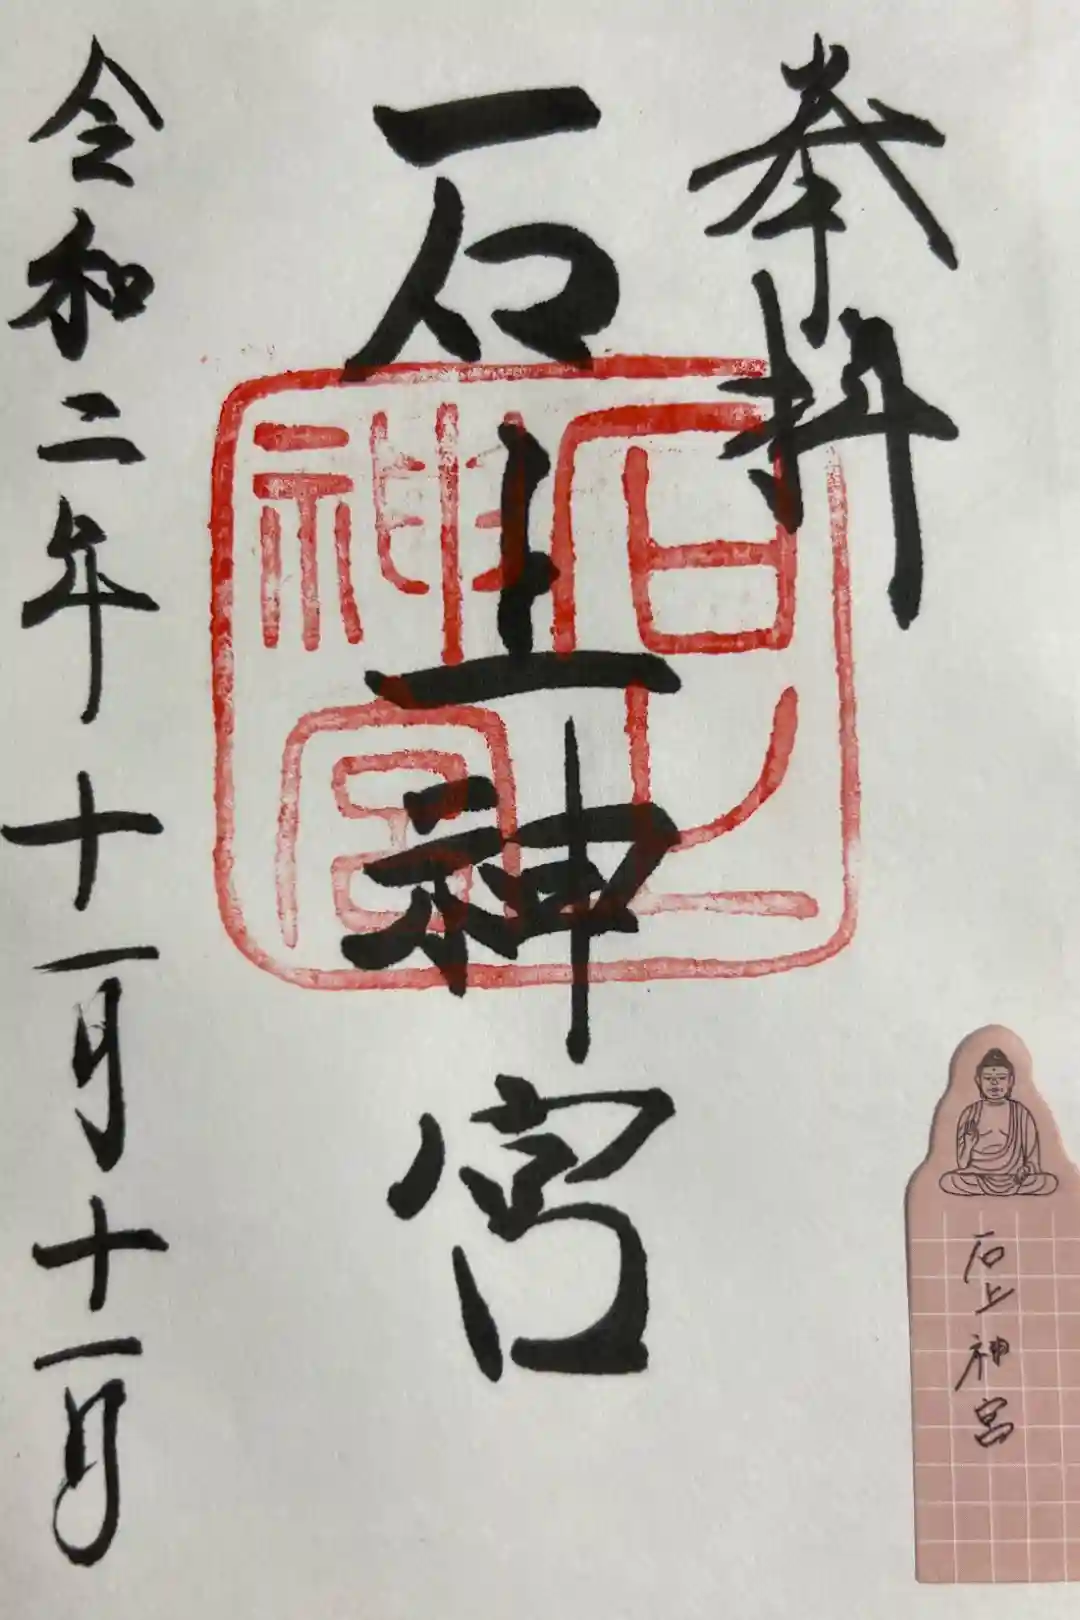 奉拝
石上神宮
石上神宮
令和二年十一月十一日
石上神宮